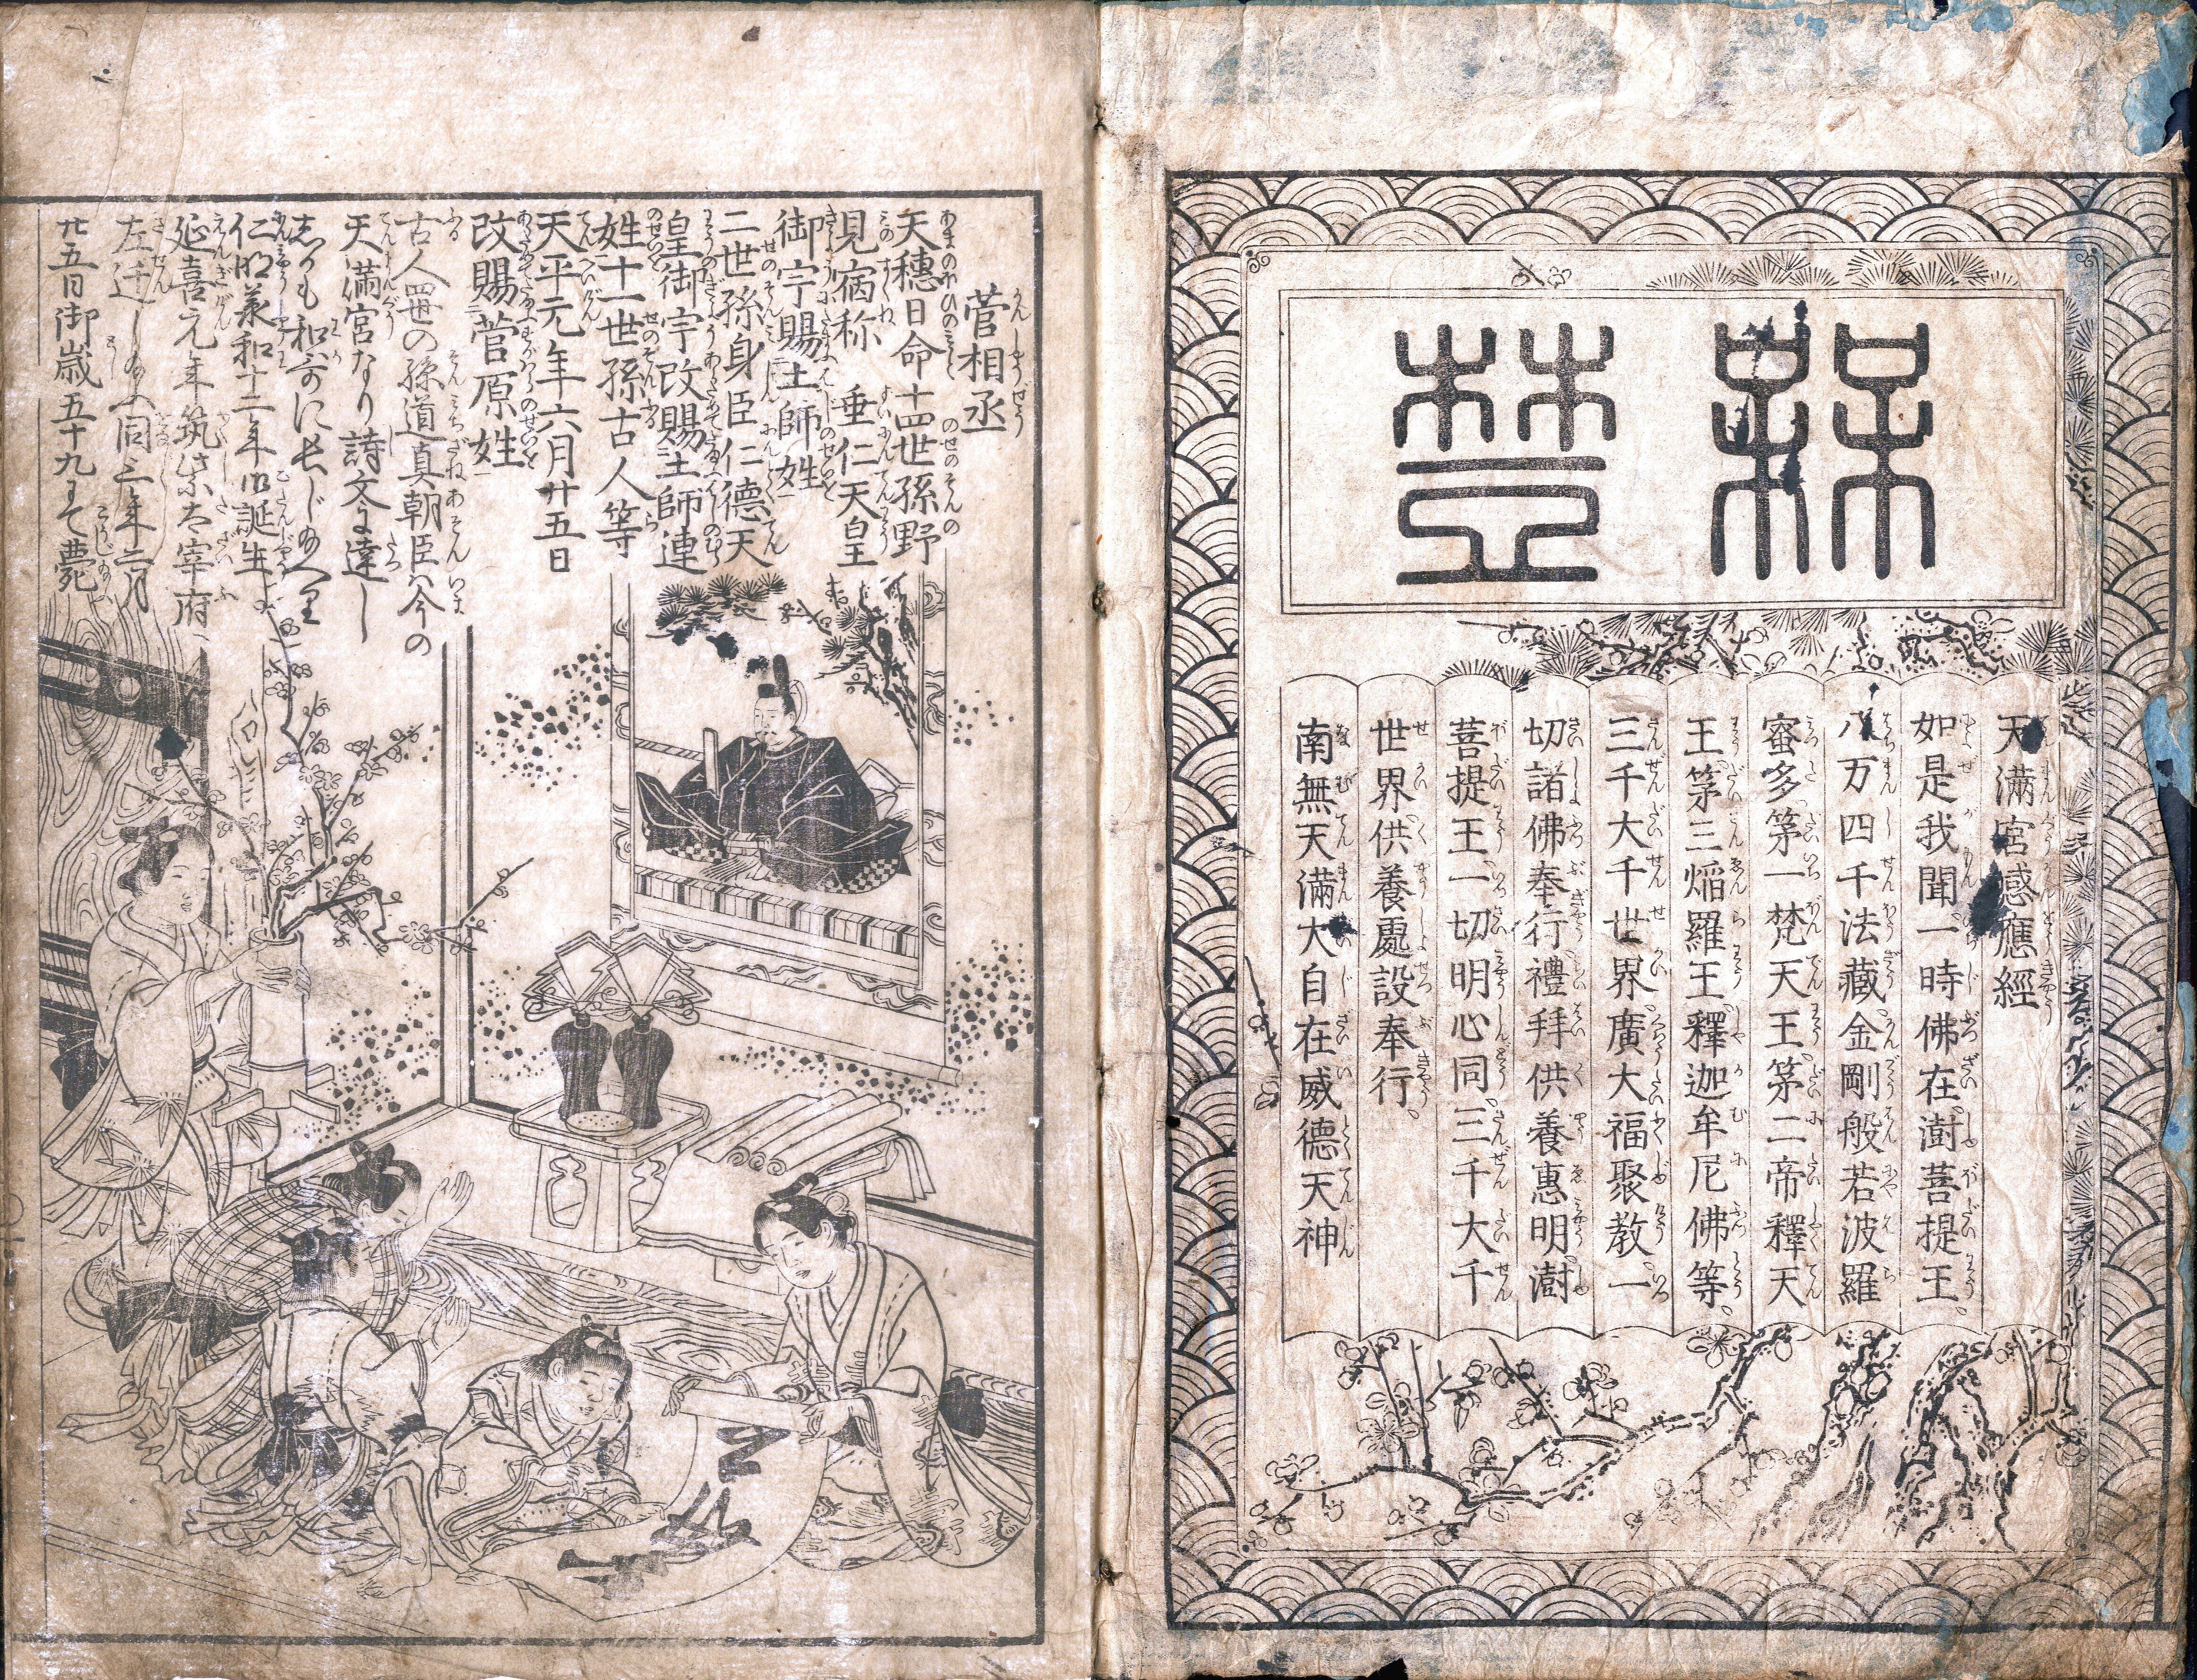 天満宮感應經
如是我聞一時佛在澍菩提王
八万四千法藏金剛般若波羅
蜜多第一梵天王第二帝釋天
王第三熖羅王釋迦牟尼佛等
三千大千世界廣大福聚教一
切諸佛奉行禮拝供養惠明澍
菩提王一切明心同三千大千
世界供養處設奉行
南無天滿大自在威德天神
菅相丞
天穗日命十四世孫野
見宿祢 垂仁天皇
御宇賜土師姓
二世孫身臣仁德天
皇御宇改賜土師連
姓十一世孫古人等
天平元年六月廿五日
改賜菅原姓
古人四世の孫道真朝臣ハ今の
天滿宮なり詩文に達し
仁明承和十二年御誕生
延喜元年筑紫太宰府
同三年二月
廿五日御歳五十九にて薨